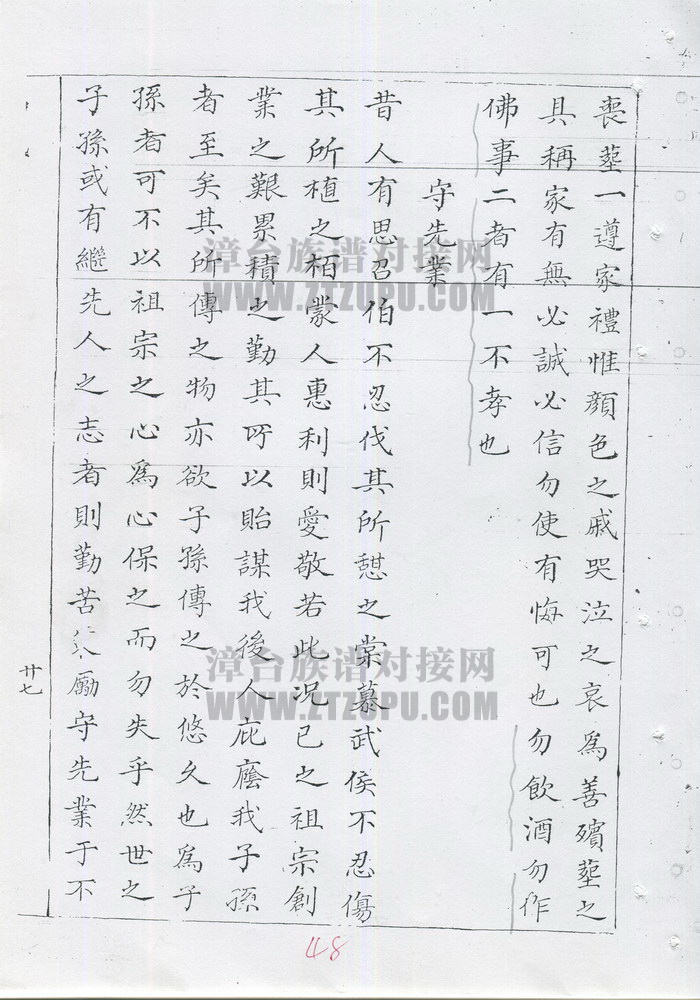 喪塟一遵家禮惟顏色之戚哭泣之哀為善殯塟之
具稱家有無必誠必信勿使有悔可也勿飲酒勿作
佛事二者有一不孝也
守先業
昔人有思召伯不忍伐其所憇之棠慕武侯不忍傷
其所植之栢蒙人惠利則愛敬若此况已之祖宗創
業之艱累積之勤其所以貽謀我後人庇廕我子孫
者至矣其所傳之物亦欲子孫傳之於悠久也為子
孫者可不以祖宗之心為心保之而勿失乎然世之
子孫或有繼先人之志者則勤苦勵守先業于不
廿七
48
漳台族谱对接网
WWW.ZTZUPU.COM
漳台族谱对接网
WWW.ZTZUPU.COM